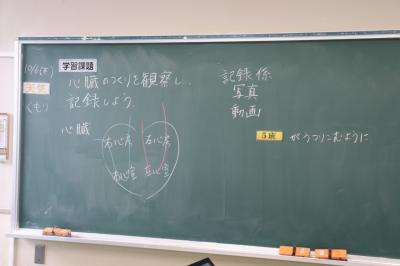 10/6(木)
天気
くもり
学習課題
心臓のつくりを観察し、
記録しよう
心臓
右心房 左心房
右心室 左心室
記録係
写真
動画
5班 がうつりこむように